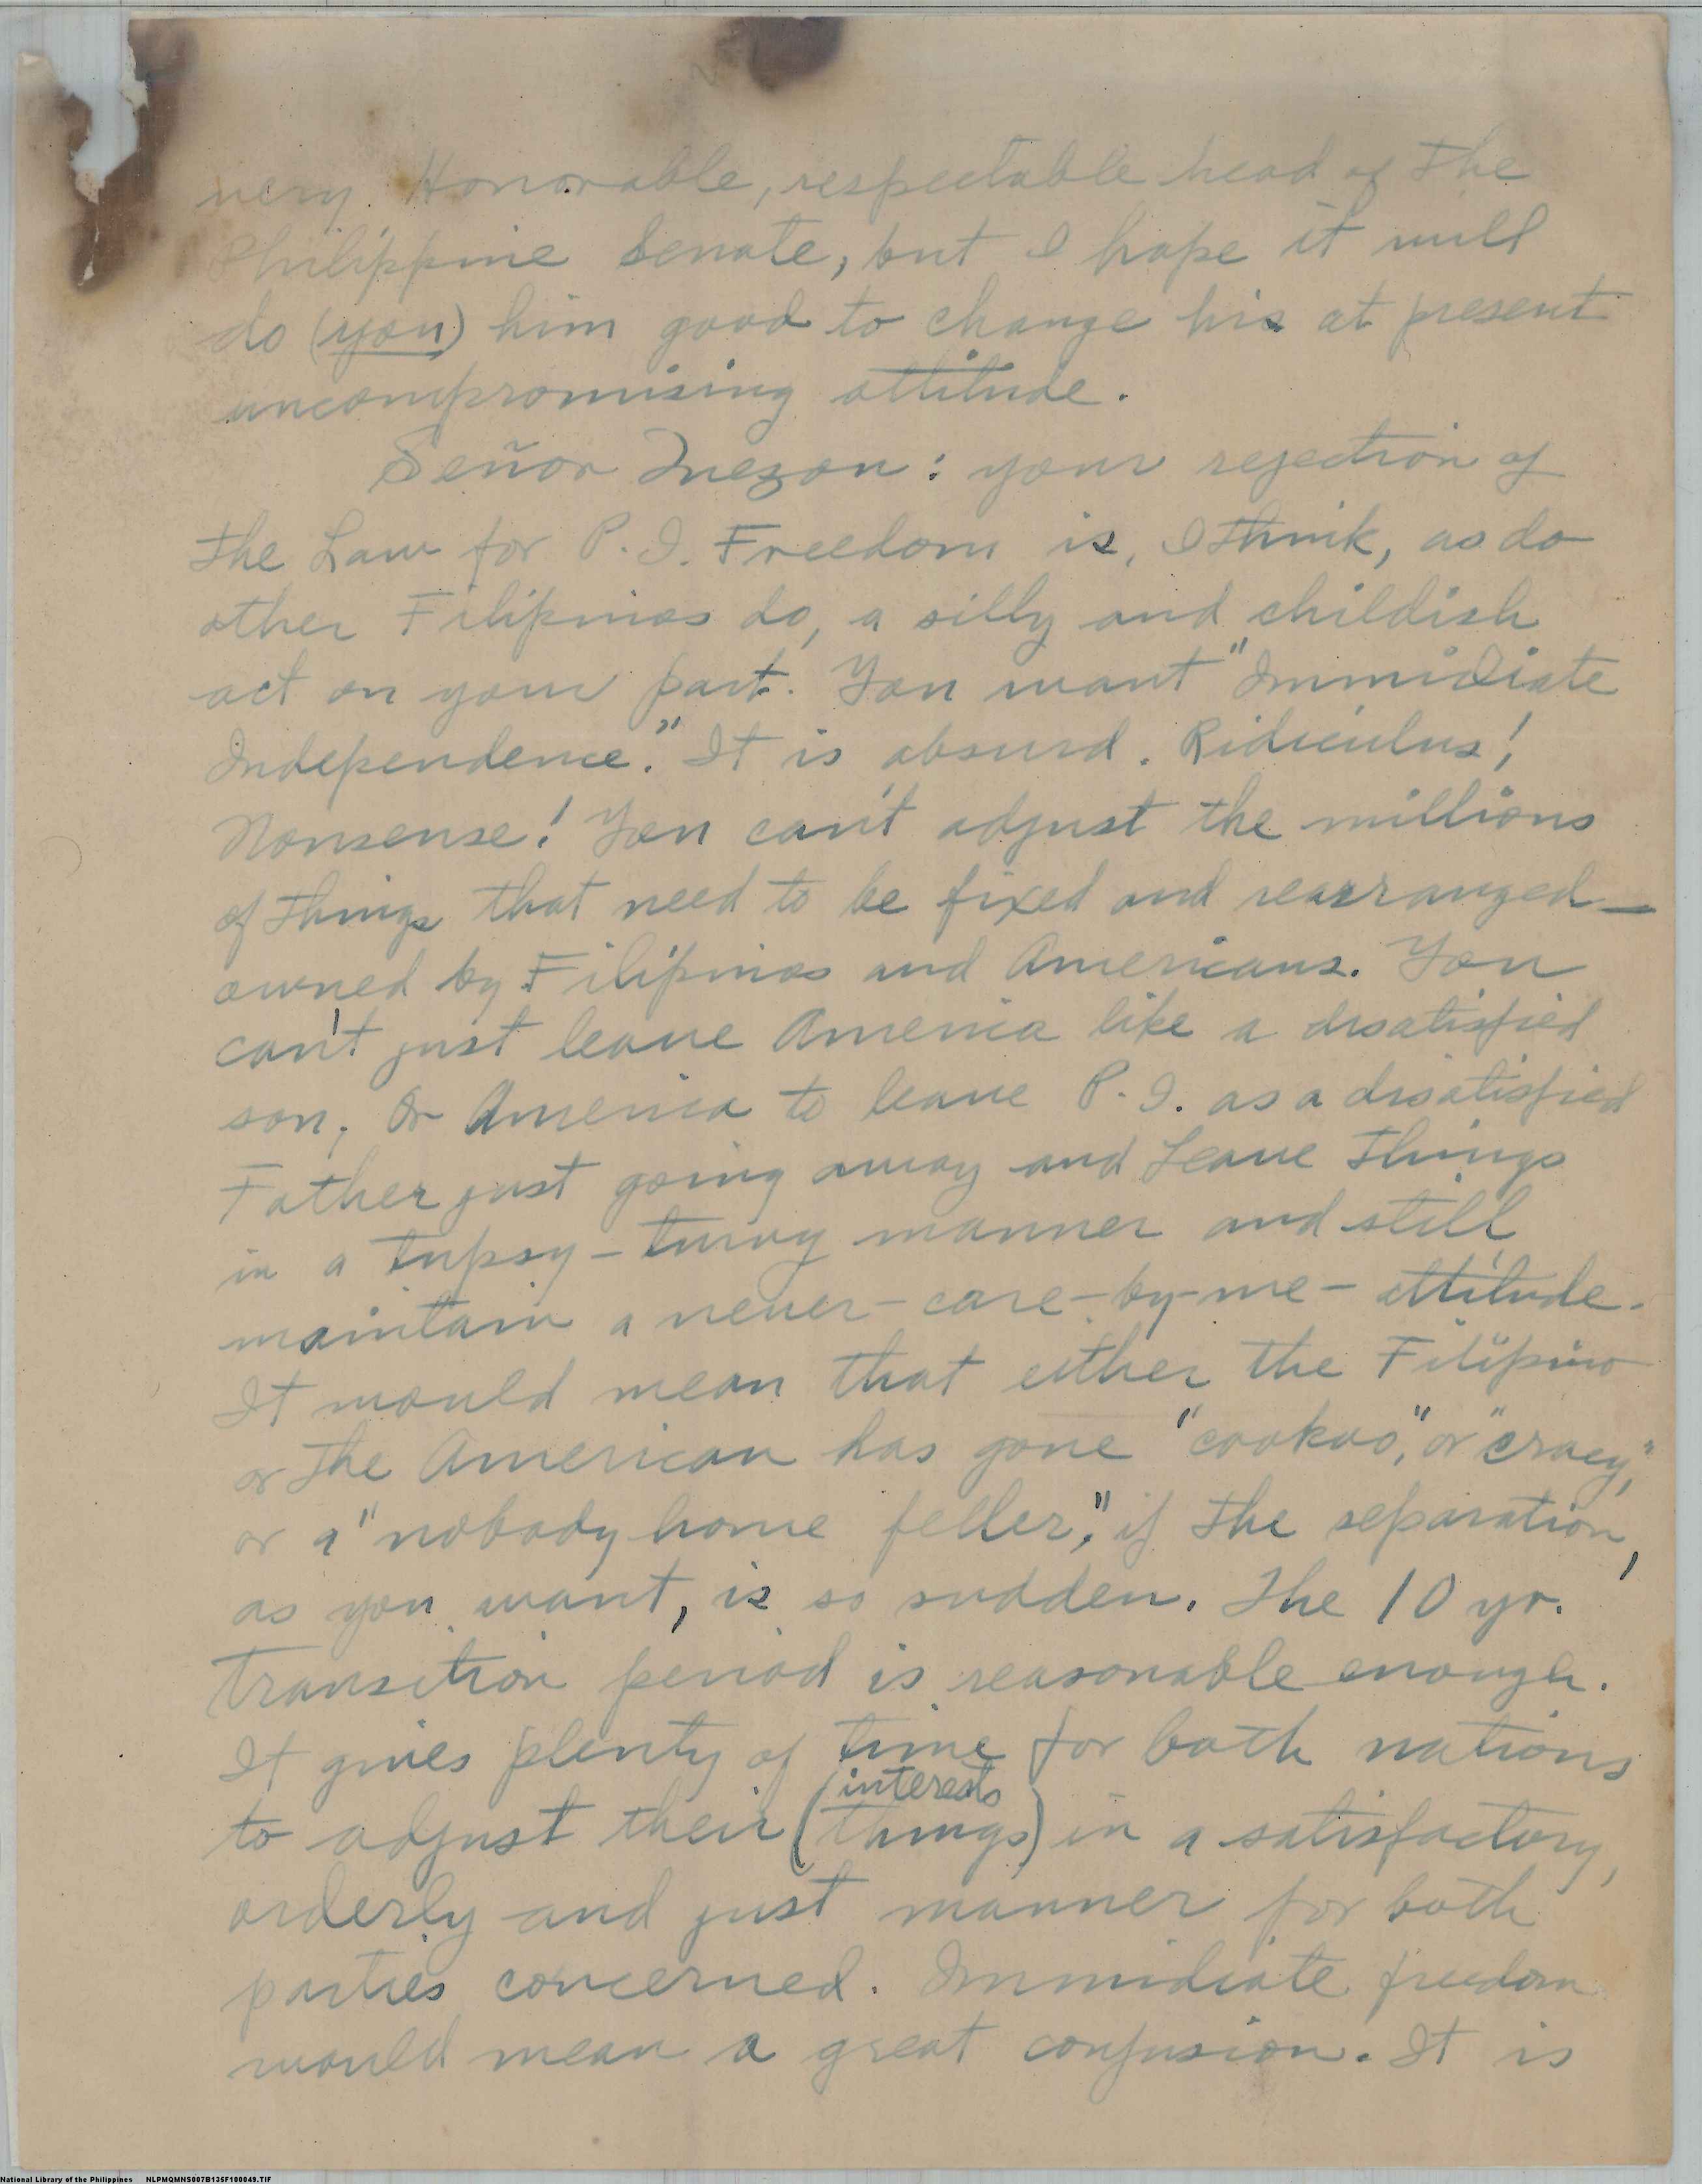 very Honorable, respectable head of the
Philippine Senate, but I hope it will
do (you) him good to change his at present
uncompromising attitude.
Señor Quezon: your rejection of
the Law for P. I. Freedom is, I think, as do
other Filipinos do, a silly and childish
act on your part. You want "Immidiate
Independence." It is absurd. Ridiculus!
Nonsense! You can't adjust the millions
of things that need to be fixed and rearranged—
owned by Filipinos and Americans. You
can't just leave America like a disatisfied
son, Or America to leave P. I. as a disatisfied
Father just going away and Leave things
in a tupsy-turvy manner and still
maintain a never-care-by-me-attitude.
It would mean that either the Filipino
or the American has gone "cookoo," or "cracy,"
or a "nobody home feller," if the separation,
as you want, is so sudden. The 10 yr.
transition period is reasonable enough.
It gives plenty of time for both nations
interests
to adjust their (things) in a satisfactory,
orderly and just manner for both
parties concerned. Immidiate freedom
would mean a great confusion. It is
National Library of the Philippines NLPMQMNS007B135F100049.TIF